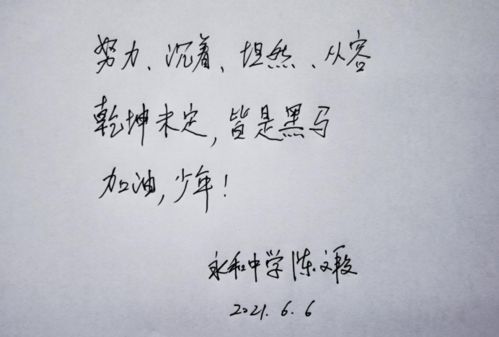 努力、沉着、坦然、从容
乾坤未定,皆是黑马
加油,少年!
永和中学 陈文毅
2021.6.6